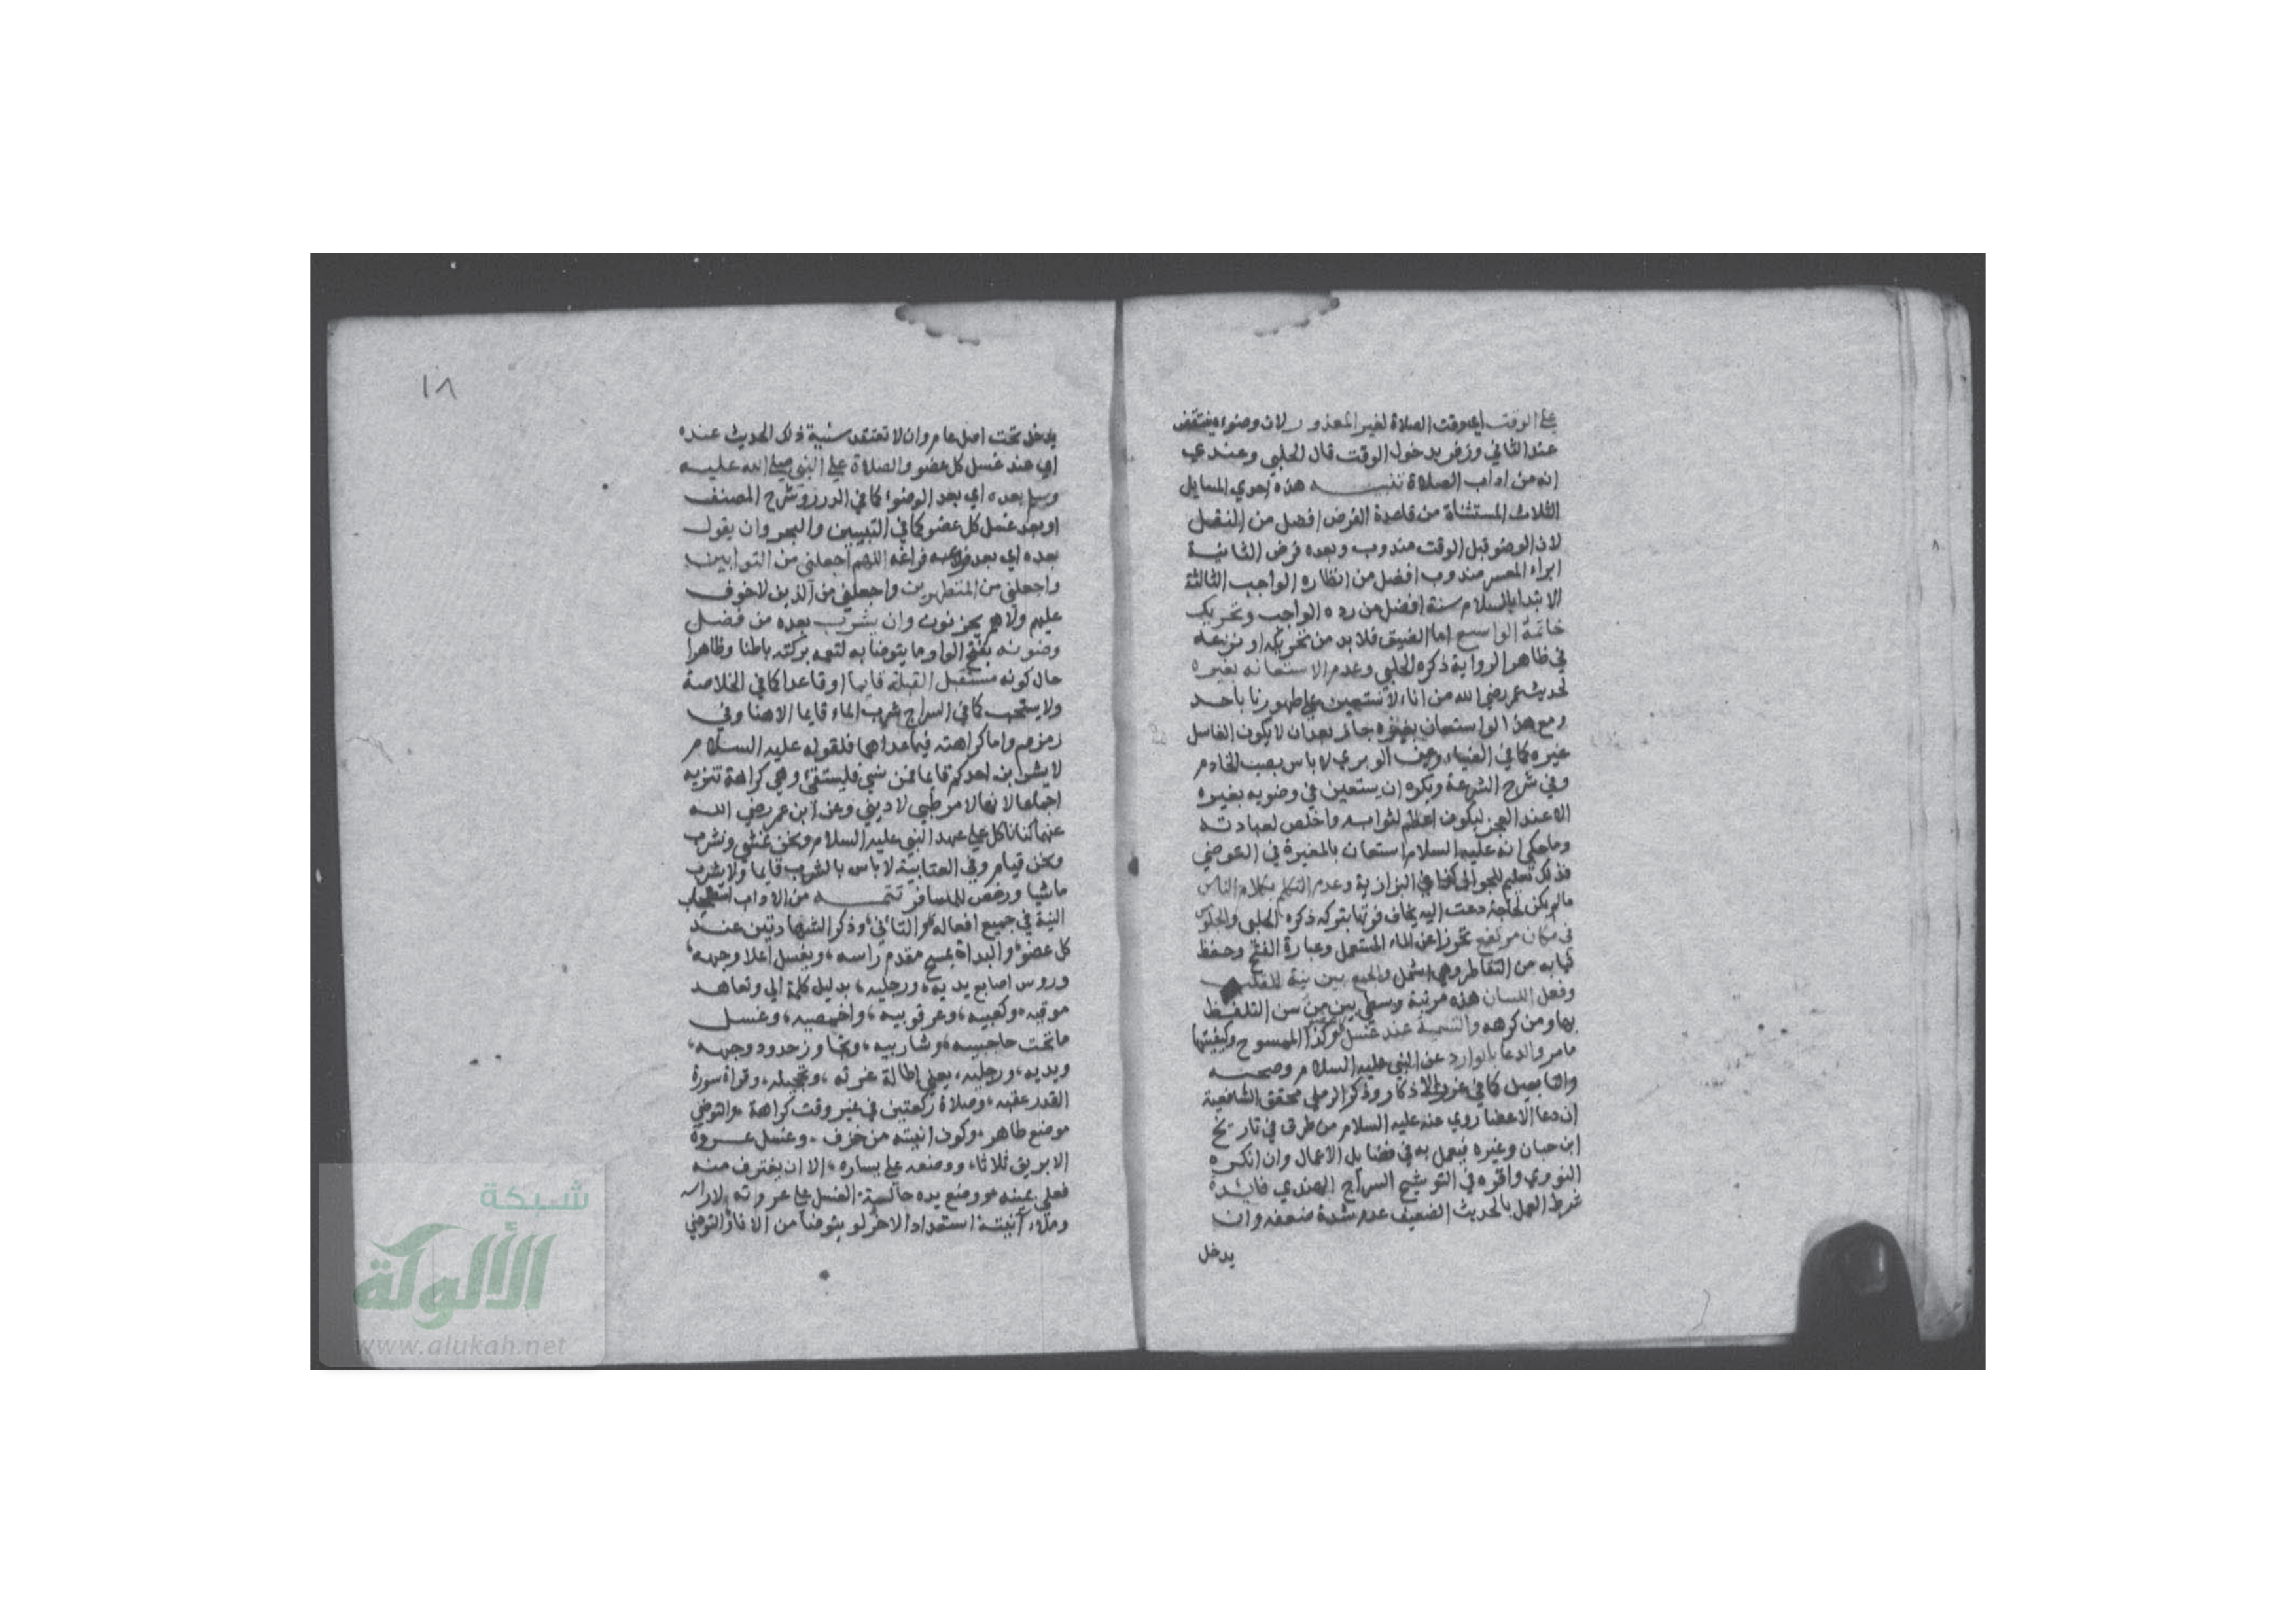 على الوقت اي وقت الصلاة لغير المعذور لان وضوءه ينتقض
عند الثاني وزفر بدخول الوقت قال الحلبي وعندي
انه من اداب الصلاة تنبيه هذه احدي المسايل
الثلاث المستثناة من قاعدة الفرض افضل من النفل
لان الوضو قبل الوقت مندوب وبعده فرض الثانية
ابراء المعسر مندوب افضل من انظاره الواجب الثالثة
الابتدا بالسلام سنة افضل من رده الواجب وتحريك
خاتمه الواسع اما الضيق فلا بد من تحريكه او نزعه
في ظاهر الرواية ذكره الحلبي وعدم الاستعانه بغيره
لحديث عمر رضي الله من انا لا نستعين على طهورنا باحد
ومع هذا لو استعان بغيره جاز بعد ان لا يكون الغاسل
غيره كما في الضياء وعن الوبري لا باس بصب الخادم
وفي شرح الشرعة ويكره ان يستعين في وضويه بغيره
الا عند العجز ليكون اعظم لثوابه واخلص لعبادته
وما حكي انه عليه السلام استعان بالمغيرة في التوضي
فذلك تعليم للجواز كذا في البزازية وعدم التكلم بكلام الناس
ما لم يكن لحاجة دعت اليه يخاف فوتها بتركه ذكره الحلبي والجلوس
في مكان مرتفع تحرزا عن الماء المستعمل وعبارة الفتح وحفظ
ثيابه من التقاطر وهي اشمل والجمع بين نية القلب
وفعل اللسان هذه مرتبة وسطى بين من سن التلفظ
بها ومن كرهه والتسمية عند غسل كل وكذا الممسوح وكيفيتها
ما مر والدعا بالوارد عن النبي عليه السلام وصحبه
والتابعين كما في الاذكار وذكر الرملي محقق الشافعية
ان دعا الاعضا روي عنه عليه السلام من طرق في تاريخ
ابن حبان وغيره فيعمل به في فضايل الاعمال وان انكره
النووي واقره في التوشيح السراج الهندي فايدة
شرط العمل بالحديث الضعيف عدم شدة ضعفه وان
يدخل
١٨
يدخل تحت اصل عام وان لا تعتقد سنية ذلك الحديث عنده
اي عند غسل كل عضو والصلاة على النبي صلى الله عليه
وسلم بعده اي بعد الوضوء كما في الدرر وشرح المصنف
او بعد غسل كل عضو كما في التبيين والبحر وان يقول
بعده اي بعد فراغه اللهم اجعلني من التوابين
واجعلني من المتطهرين واجعلني من الذين لا خوف
عليهم ولا هم يحزنون وان يشرب بعده من فضل
وضوئه بفتح الواو ما يتوضا به لتعم بركته باطنا وظاهرا
حال كونه مستقبل القبلة قايما او قاعدا كما في الخلاصة
ولا يستحب كما في السراج شرب الماء قايما الا هنا وفي
زمزم واما كراهته فيما عداهما فلقوله عليه السلام
لا يشربن احدكم قايما فمن نسي فليستقئ وهي كراهة تنزيه
اجماعا لانها لامر طبي لا ديني وعن ابن عمر رضي الله
عنهما كنا ناكل على عهد النبي عليه السلام ونحن نمشي ونشرب
ونحن قيام وفي العتابية لا باس بالشرب قايما ولا يشرب
ماشيا ورخص للمسافر تتمه من الاداب استصحاب
النية في جميع افعاله والتاني وذكر الشهادتين عند
كل عضو والبداة بمسح مقدم راسه وبغسل اعلا وجهه
وروس اصابع يديه ورجليه بدليل كلمة الى وتعاهد
موقيه وكعبيه وعرقوبيه واخمصيه وغسل
ما تحت حاجبيه وشاربيه وتجاوز حدود وجهه
ويديه ورجليه يعني اطالة غرته وتحجيله وقراة سورة
القدر عقبه وصلاة ركعتين في غير وقت كراهة والتوضي
موضع طاهر وكون انيته من خزف وغسل عروة
الابريق ثلاثا ووضعه على يساره الا ان يغترف منه
فعلى يمينه ووضع يده حالة الغسل على عروته لا راسه
وملاء آنيته استعدادا لاخر لو يتوضا من الاناء والتوضي
شبكة
الألوكة
www.alukah.net